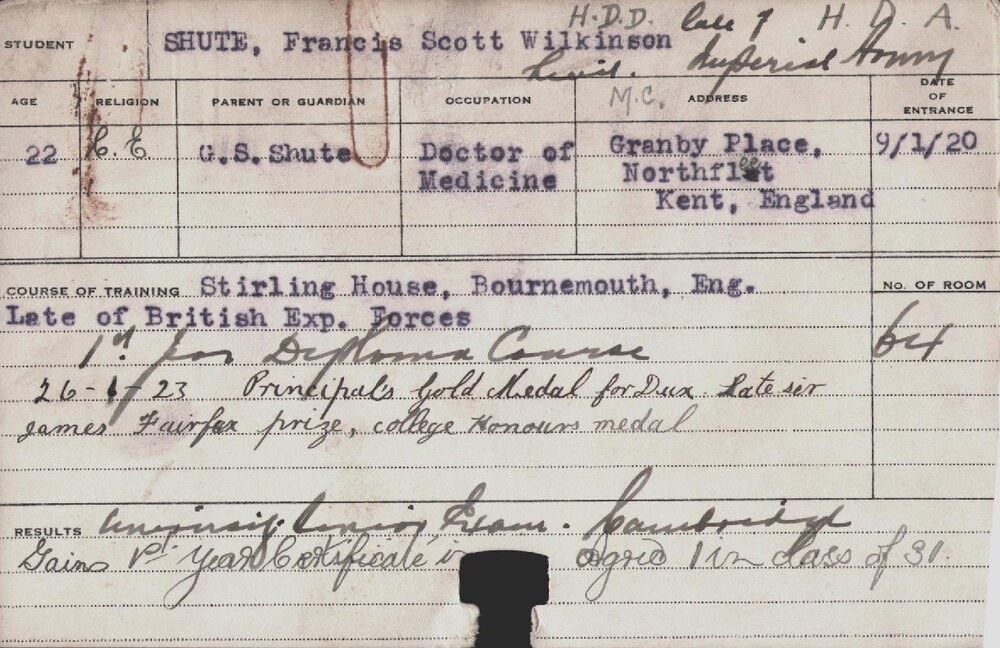 H.D.D. Late of H. D. A.
STUDENT SHUTE, Francis Scott Wilkinson
Imperial Army
AGE RELIGION PARENT OR GUARDIAN OCCUPATION M.C. ADDRESS DATE OF ENTRANCE
22 C.E G.S.Shute Doctor of Medicine Granby Place, Northfleet Kent, England 9/1/20
COURSE OF TRAINING Stirling House, Bournemouth, Eng. No. OF ROOM
Late of British Exp. Forces
1st year Diploma Course 64
26-1-23 Principal's Gold Medal for Dux. Late sir
james Fairfax prize, college Honours medal
RESULTS University Junior Exam. Cambridge
Gains 1st Year Certificate in Agric 1 in class of 31.